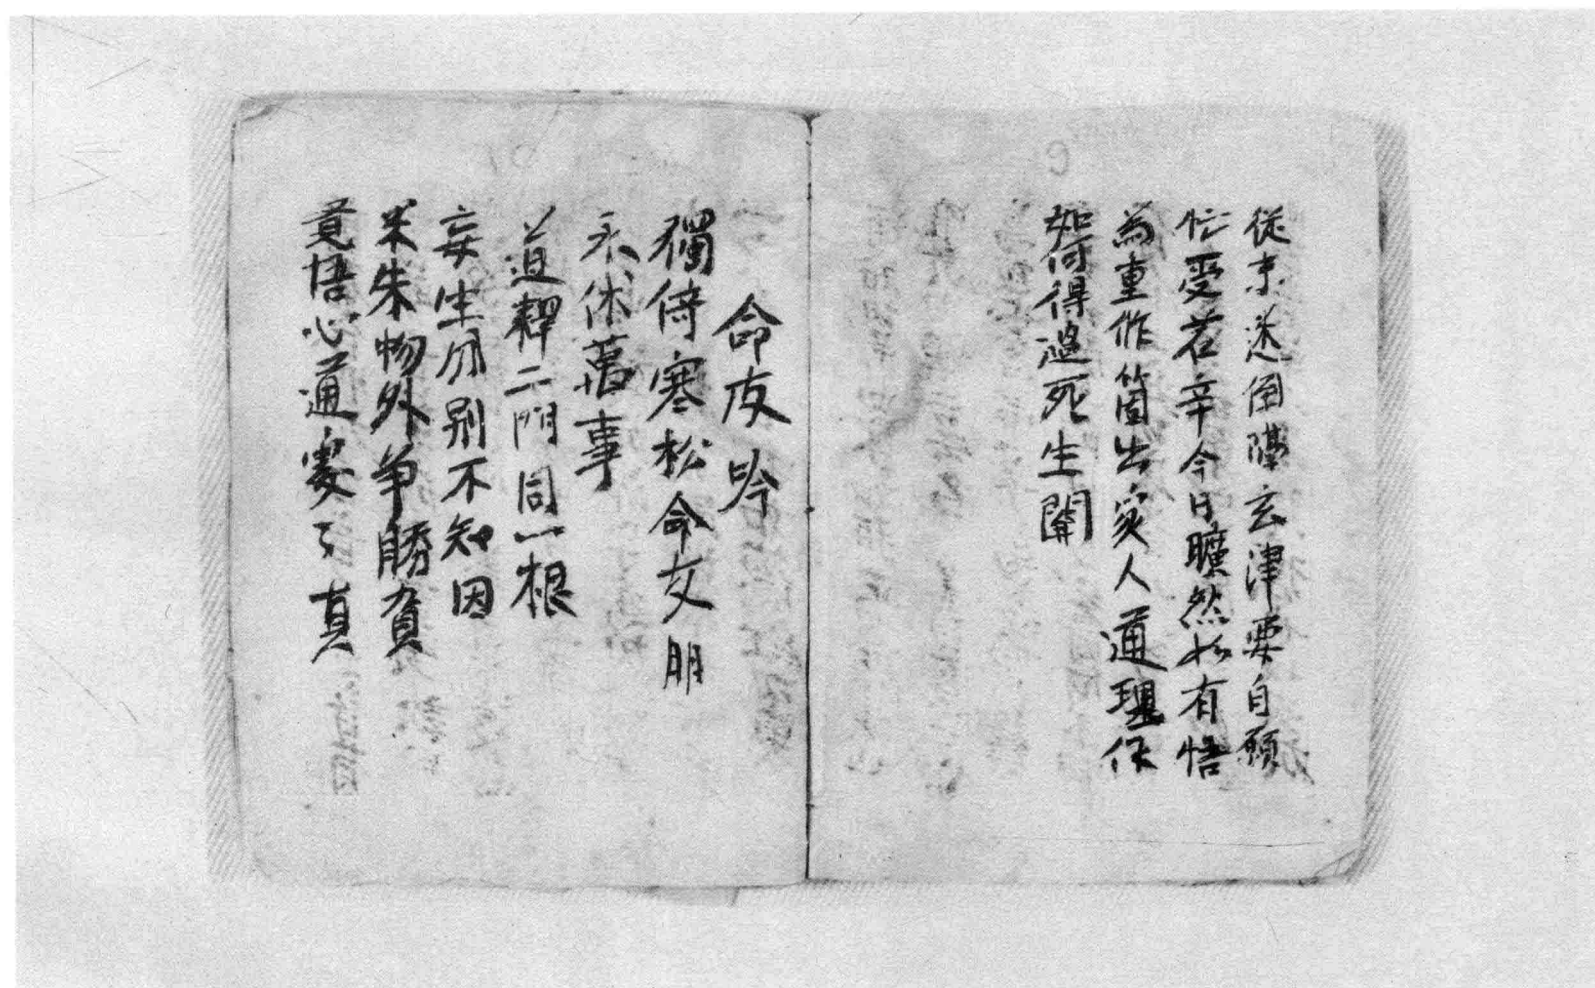 從来迷倒隔玄津要自願
忙受苦辛今日曠然水有悟
為重作箇出家人通理作
如何得過死生關
命友吟
獨倚寒松命友朋
永休萬事
道釋二門同一根
妄生分别不知因
米朱物外爭勝負
竟悟心通要了真